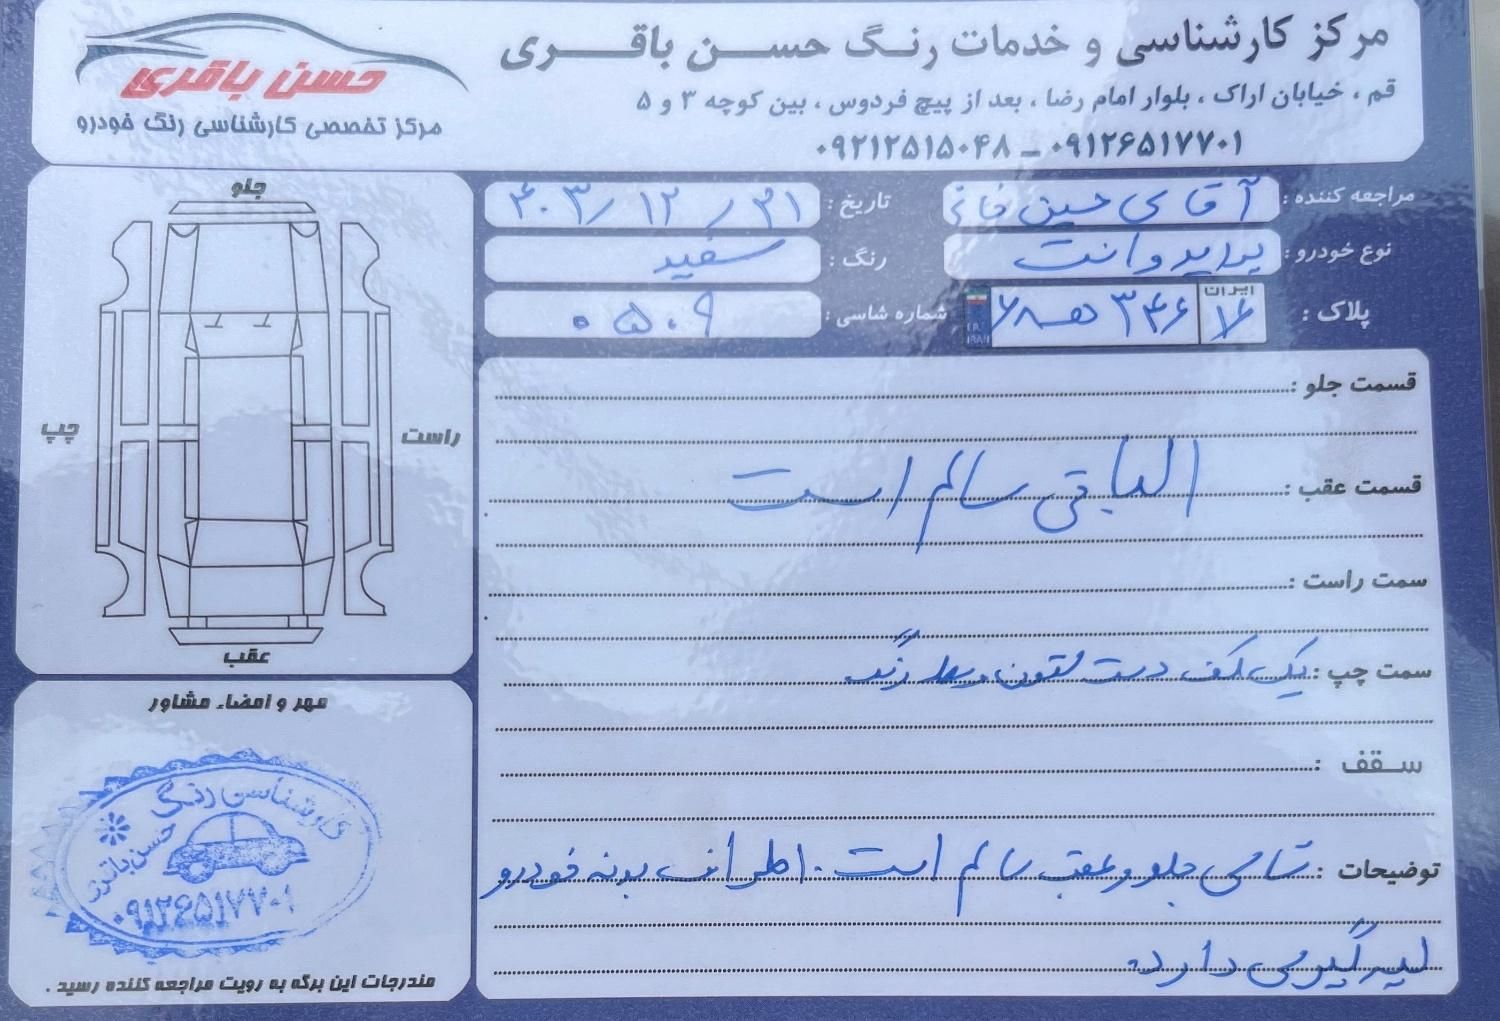 مرکز کارشناسی و خدمات رنگ حسن باقری
قم ، خیابان اراک ، بلوار امام رضا ، بعد از پیچ فردوس ، بین کوچه ۳ و ۵
۰۹۱۲۶۵۱۷۷۰۱ - ۰۹۲۱۲۵۱۵۰۴۸
حسن باقری
مرکز تخصصی کارشناسی رنگ خودرو
مراجعه کننده : آقای حسین
تاریخ : ۴۰۳/۱۲/۲۱
نوع خودرو : پراید وانت
رنگ : سفید
پلاک : ایران ۱۶ ۳۴۶ هـ ۶۸
I.R. IRAN
شماره شاسی : ۰۵۰۹
جلو
چپ
راست
عقب
قسمت جلو :
قسمت عقب : الباقی سالم است
سمت راست :
سمت چپ : یک کف دست ستون وسط رنگ
سقف :
توضیحات : شاسی جلو و عقب سالم است . اطراف بدنه خودرو
لیسگیری دارد.
مهر و امضاء مشاور
کارشناسی رنگ
حسن باقری
۰۹۱۲۶۵۱۷۷۰۱
مندرجات این برگه به رویت مراجعه کننده رسید .